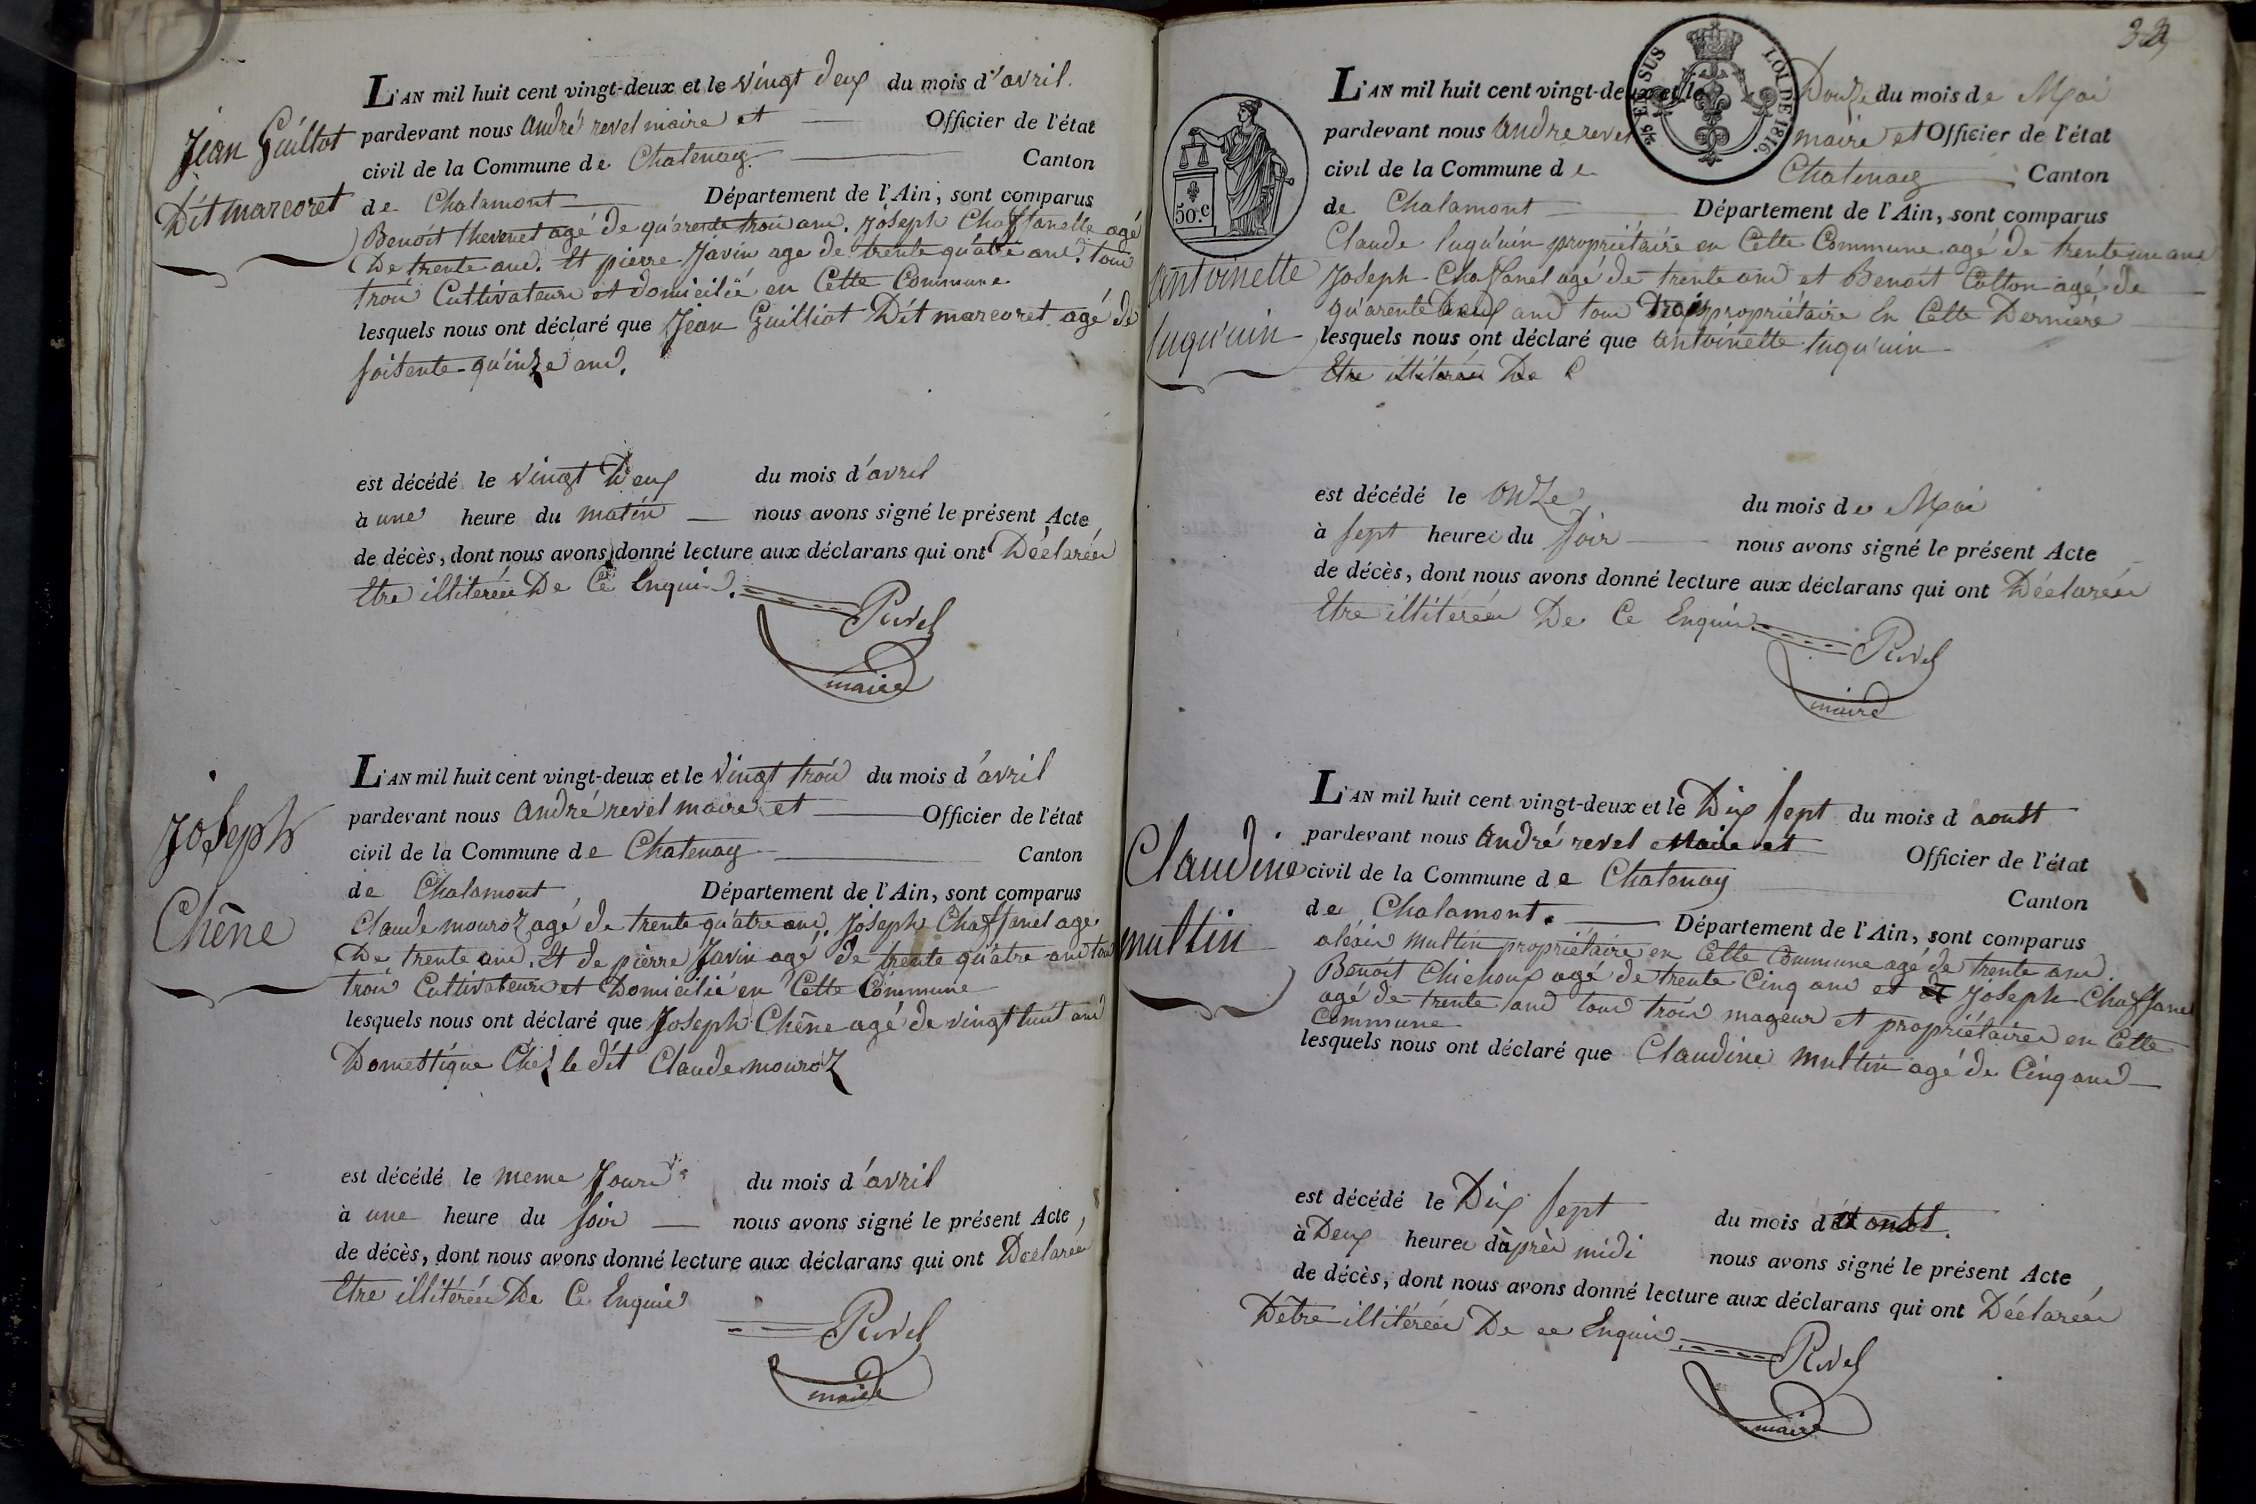 Jean Guillot
Dit marcoret
L'AN mil huit cent vingt-deux et le vingt deux du mois d'avril.
pardevant nous andré revel maire et Officier de l'état
civil de la Commune de Chatenay Canton
de Chalamont Département de l'Ain, sont comparus
Benoit thevenet agé de qu'arente trois ans. Joseph Chaffanelle agé
De trente ans. Et pierre Javin age de trente qu'atre ans. tous
trois Cultivateurs et domicilié en Cette Commune
lesquels nous ont déclaré que Jean Guilliot Dit marcoret agé de
soisente-qu'inze ans.
est décédé le vingt Deux du mois d'avril
à une heure du matin nous avons signé le présent Acte
de décès, dont nous avons donné lecture aux déclarans qui ont Déclarés
Etre illiterés De Ce Enquis.
Revel
maire
Joseph
Chêne
L'AN mil huit cent vingt-deux et le vingt trois du mois d'avril
pardevant nous andré revel maire et Officier de l'état
civil de la Commune de Chatenay Canton
de Chalamont Département de l'Ain, sont comparus
Claude mouroz agé de trente qu'atre ans. Joseph Chaffanel agé
De trente ans. Et de pierre Javin agé de trente qu'atre ans tous
trois Cultivateurs et Domicilié en Cette Commune
lesquels nous ont déclaré que Joseph Chêne agé de vingt huit ans
Domestique Chez le dit Claude mouroz
est décédé le meme Jours du mois d'avril
à une heure du soir nous avons signé le présent Acte,
de décès, dont nous avons donné lecture aux déclarans qui ont Declarés
Etre illitérés De Ce Enquis
Revel
maire
EN SUS
LOI DE 1816.
50.c
antoinette
luqu'uin
L'AN mil huit cent vingt-deux et le Douze du mois de Mai
pardevant nous andre revel maire et Officier de l'état
civil de la Commune de Chatenay Canton
de Chalamont Département de l'Ain, sont comparus
Claude luqu'uin propriétaire en Cette Commune agé de trente un ans
Joseph Chaffanel agé de trente ans et Benoit Cotton agé de
qu'arente Deux ans tous Trois propriétaire En Cette Derniere
lesquels nous ont déclaré que antoinette luqu'uin
Etre illiterés De C
est décédé le onze du mois de Mai
à sept heures du soir nous avons signé le présent Acte
de décès, dont nous avons donné lecture aux déclarans qui ont Déclarés
Etre illitérés De Ce Enquis.
Revel
maire
Claudine
multin
L'AN mil huit cent vingt-deux et le Dix sept du mois d'aoust
pardevant nous andré revel Maire et Officier de l'état
civil de la Commune de Chatenay Canton
de Chalamont. Département de l'Ain, sont comparus
aléxis multin propriétaire en Cette Commune agé de trente ans.
Benoit Chichoux agé de trente Cinq ans et Joseph Chaffanel
agé de trente ans tous trois mageurs et propriétaires en Cette
Commune
lesquels nous ont déclaré que Claudine multin agé de Cinq ans
est décédé le Dix sept du mois d'aoust.
à Deux heures d'après midi nous avons signé le présent Acte
de décès, dont nous avons donné lecture aux déclarans qui ont Déclarés
D'etre illitérés De ce Enquis.
Revel
maire